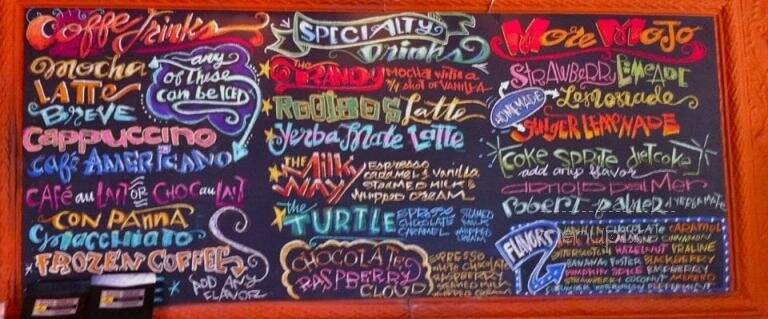 Coffee Drinks
Mocha
Latte
Breve
any
of these
can be Iced
Cappuccino
Café Americano
Café au Lait or Choc au Lait
Con Panna
Macchiato
Frozen Coffees
Add any
flavor
Specialty
Drinks
The Randy Mocha with a
shot of Vanilla
Rooibos Latte
Yerba Mate Latte
The Milky
Way
Espresso
Caramel & Vanilla
Steamed Milk &
Whipped Cream
the Turtle
Espresso
Chocolate
Caramel
Steamed
Milk
Whipped
Cream
Chocolate
Raspberry
Cloud
Espresso
White Chocolate
Raspberry
Steamed Milk
Whipped Cream
More Mojo
Strawberry Lemonade
Homemade
Lemonade
Ginger Lemonade
Coke Sprite diet coke
add any flavor
arnold palmer
Robert Palmer
Flavors
Chocolate Caramel
Almond Cinnamon
Butterscotch Hazelnut Praline
Bananas Foster Blackberry
Pumpkin Spice Raspberry
Strawberry Coconut Amaretto
Peppermint